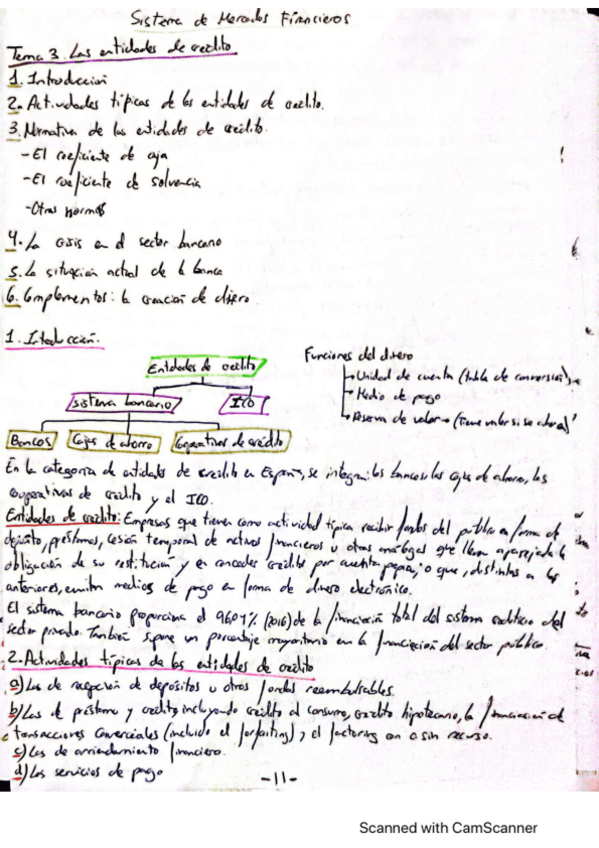 Sistema de Mercados Financieros
Tema 3. Las entidades de crédito
1. Introducción
2. Actividades típicas de las entidades de crédito.
3. Normativa de las entidades de crédito.
- El coeficiente de caja
- El coeficiente de solvencia
- Otras normas
4. La crisis en el sector bancario
5. La situación actual de la banca
6. Complementos: la creación de dinero.
1. Introducción.
Entidades de crédito
sistema bancario
ICO
Bancos
Cajas de ahorro
Cooperativas de crédito
Funciones del dinero
Unidad de cuenta (tabla de conversión)
Medio de pago
Reserva de valor → (Tiene valor si se ahorra)
En la categoría de entidades de crédito en España, se integran: los bancos, las cajas de ahorro, las
cooperativas de crédito y el ICO.
Entidades de crédito: Empresas que tienen como actividad típica recibir fondos del público en forma de
depósito, préstamos, cesión temporal de activos financieros u otras análogas que lleven aparejada la
obligación de su restitución y en conceder créditos por cuenta propia; o que, distintas a las
anteriores, emiten medios de pago en forma de dinero electrónico.
El sistema bancario proporciona el 96'04% (2016) de la financiación total del sistema crediticio del
sector privado. También supone un porcentaje mayoritario en la financiación del sector público.
2. Actividades típicas de las entidades de crédito
a) Las de recepción de depósitos u otros fondos reembolsables.
b) Las de préstamo y crédito, incluyendo crédito al consumo, crédito hipotecario, la financiación de
transacciones comerciales (incluido el forfaiting), el factoring con o sin recurso.
c) Las de arrendamiento financiero.
d) Los servicios de pago
-11-
Scanned with CamScanner